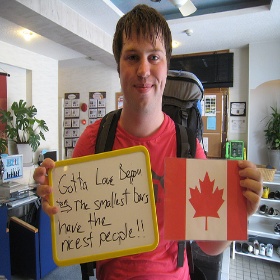 Gotta Love Begou
The smallest bars
have the
nicest people!!